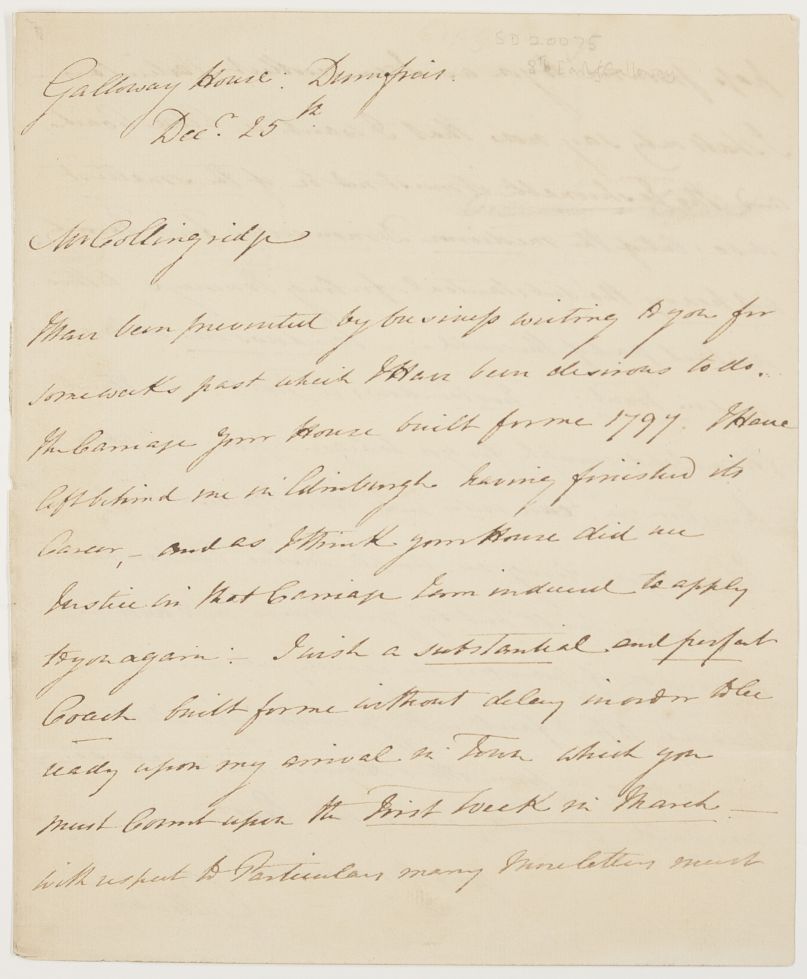 SD 20075
Galloway House: Dumfries.
Decr. 25th
Mr Collingridge
I Have been prevented by business writing to you for
some weeks past which I Have been desirous to do.
The Carriage Your House built for me 1797. I Have
left behind me in Edinburgh having finished its
Career, - and as I think your House did me
Justice in that Carriage I am induced to apply
to you again: - I wish a substantial and perfect
Coach built for me without delay in order to be
ready upon my arrival in Town which you
must Count upon the First Week in March -
with respect to Particulars many more letters must